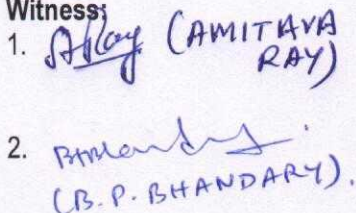 Witness:
1. ARay (AMITAVA
RAY)
2.
(B.P. BHANDARY).